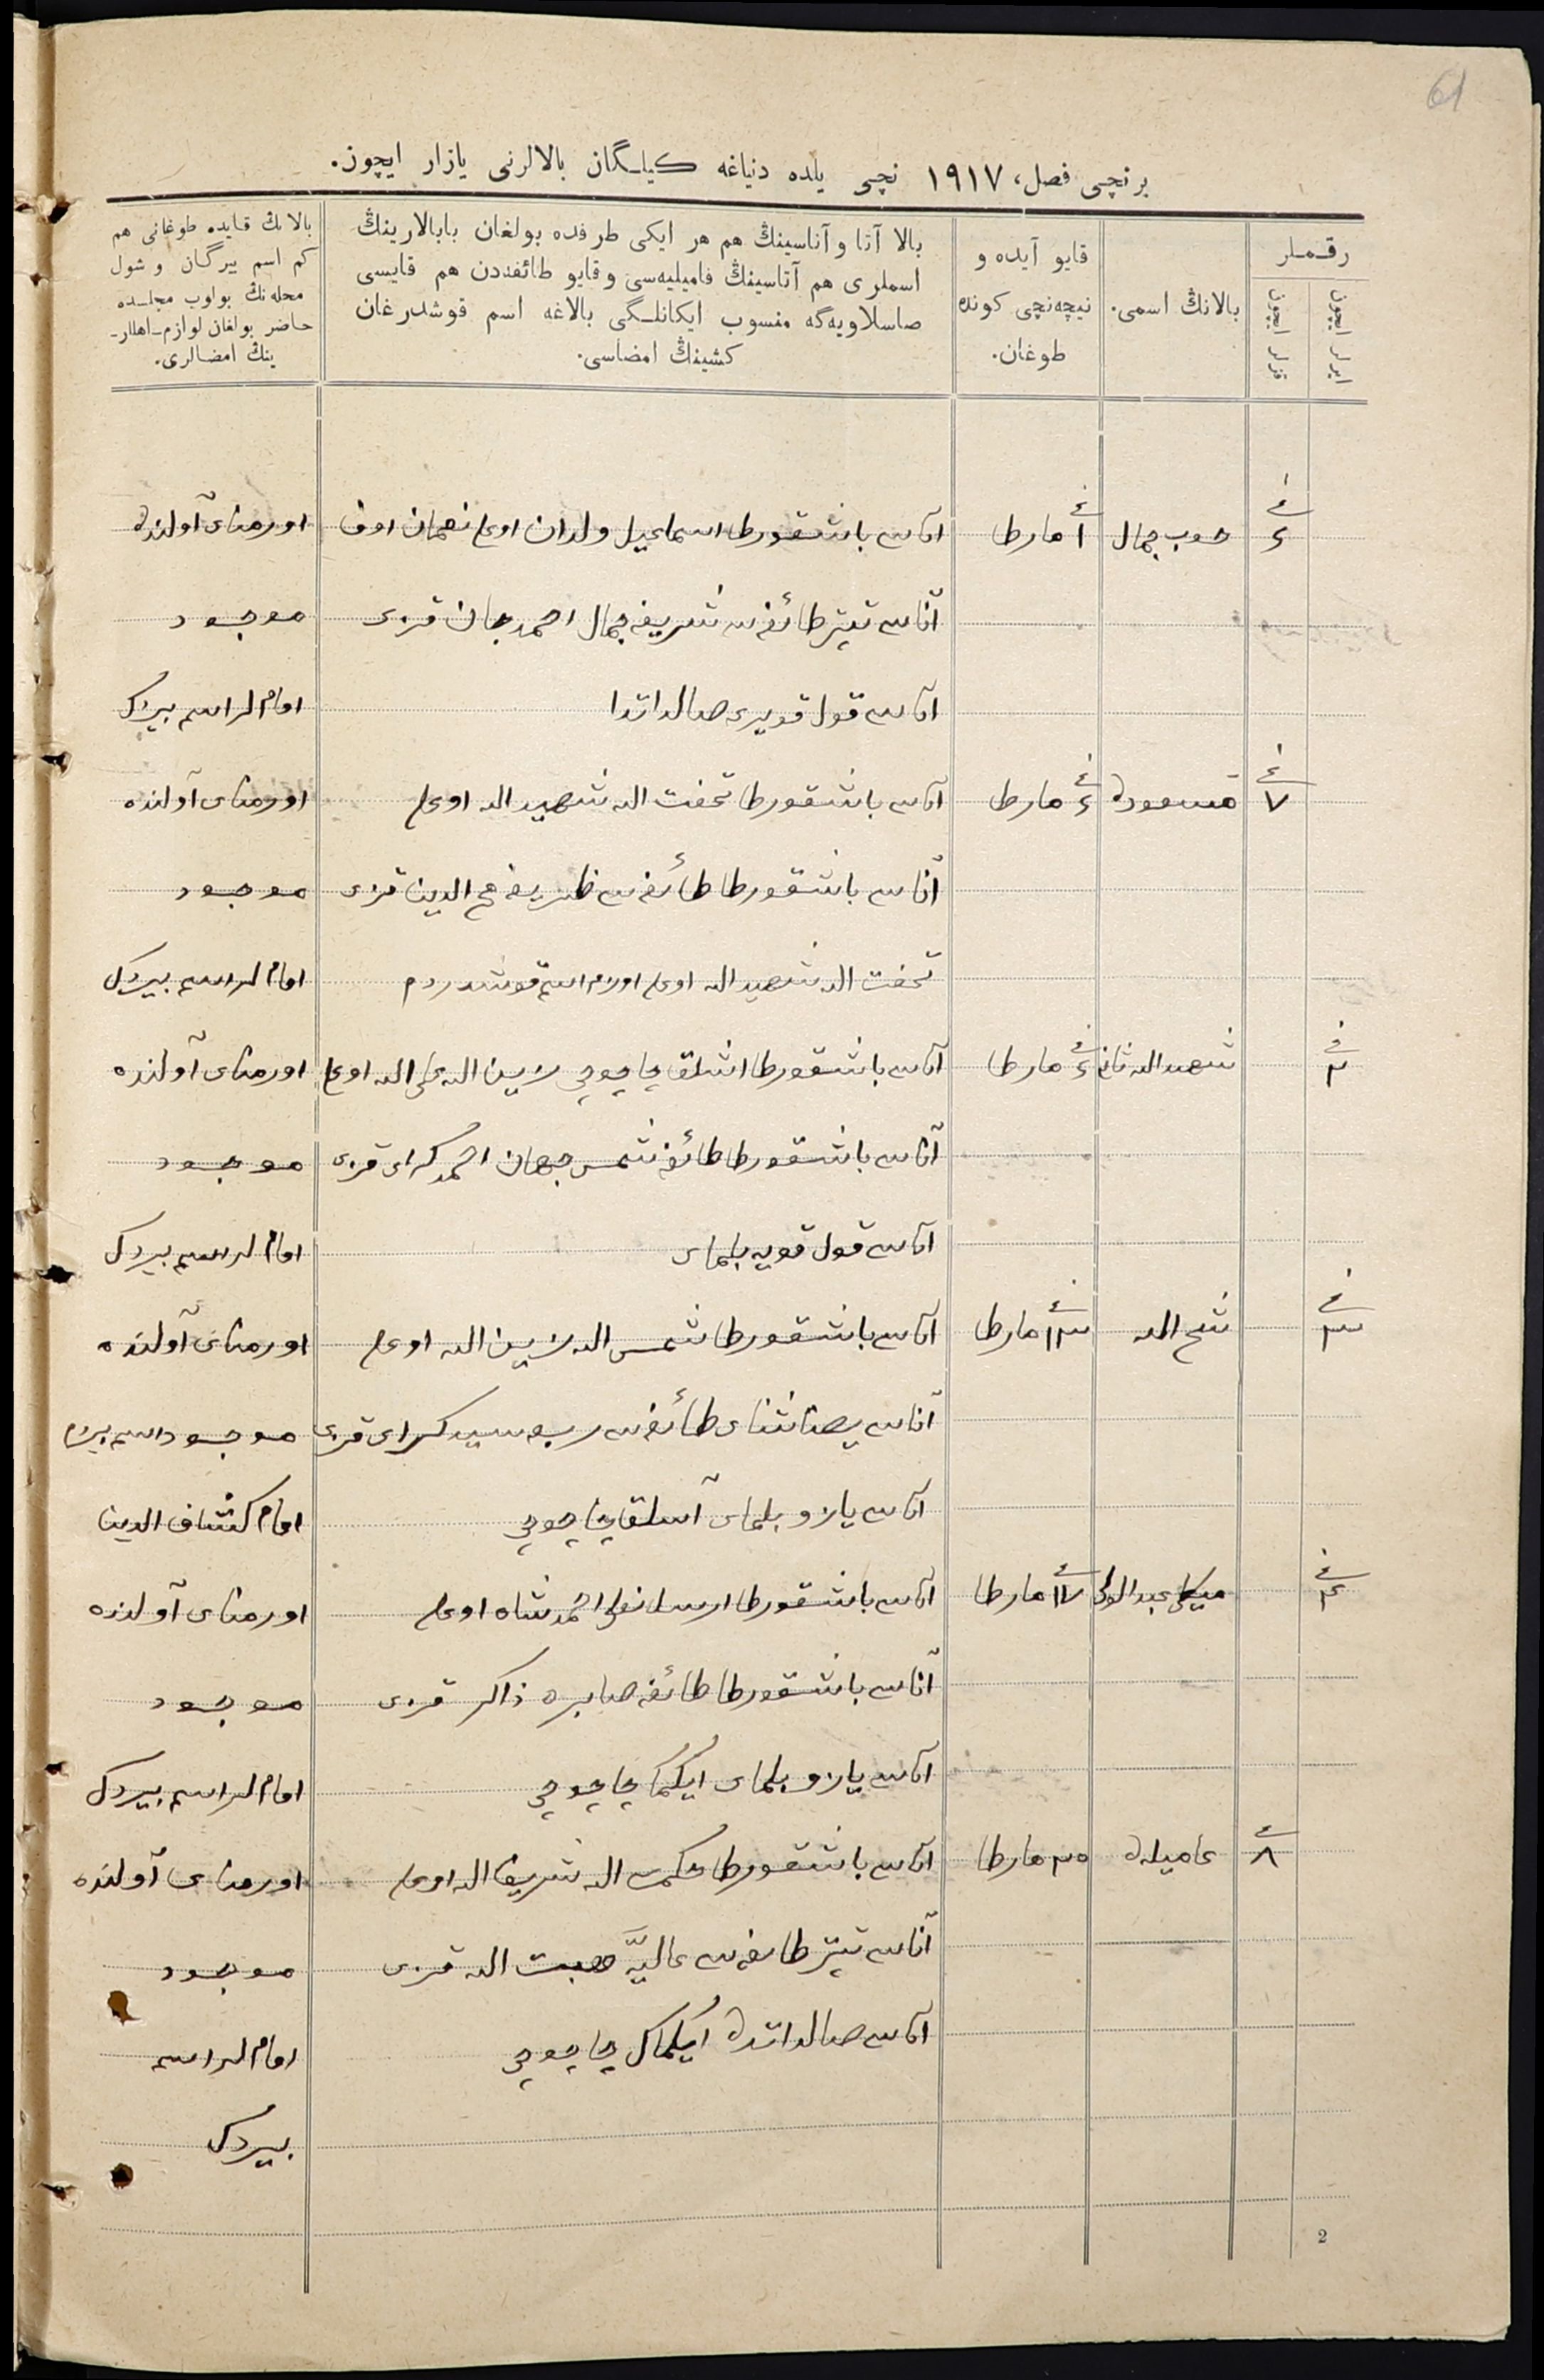 61
برنچی فصل، ١٩١٧ نچی یلده دنیاغه کیلگان بالالرنی یازار ایچون.
رقملر
ایرلر ایچون
قزلر ایچون
بالانڭ اسمی.
قایو آیده و
نیچه‌نچی کونده
طوغان.
بالا آتا و آناسینڭ هم هر ایکی طرفده بولغان بابالارینڭ
اسملری هم آتاسینڭ فامیلیه‌سی و قایو طائفه‌دن هم قایسی
صاسلاویه‌گه منسوب ایکانلگی بالاغه اسم قوشدرغان
کشینڭ امضاسی.
بالانڭ قایده طوغانی هم
کم اسم بیرگان و شول
محله‌نڭ بولوب مجلسده
حاضر بولغان لوازم-اهللر-
ینڭ امضالری.
٦ حوب جمال ١ مارطا آتاسی باشقورط اسماعیل ولدان اوغلی نعمان اوف اورمنای آولنده
آناسی تیپتر طائفه‌سی شریفه جمال احمدجان قزی موجود
آتاسی قول قویدی صالداتدا امام لر اسم بیردک
٧ مسعودة ٦ مارطا آتاسی باشقورط تحفت الله شهید الله اوغلی اورمنای آولنده
آناسی باشقورط طائفه‌سی ظریفه الدین قزی موجود
تحفت الله شهید الله اوغلی اوزم اسم قوشدردم امام لر اسم بیردک
٢ شهید الله ٦ مارطا آتاسی باشقورط اشلق چاچوچی زین الله الله اوغلی اورمنای آولنده
آناسی باشقورط طائفه شمس جهان احمد کرای قزی موجود
آتاسی قول قویه بلمای امام لر اسم بیردک
٣ شیخ الله ١٣ مارطا آتاسی باشقورط شمس الله زین الله اوغلی اورمنای آولنده
آناسی طائفه‌سی سید کرای قزی موجود
آتاسی یازو بلمای آشلق چاچوچی امام کشاف الدین
٤ ١٧ مارطا آتاسی باشقورط ارسلانغلی احمدشاه اوغلی اورمنای آولنده
آناسی باشقورط طائفه صابره ذاکر قزی موجود
آتاسی یازو بلمای ایگماک چاچوچی امام لر اسم بیردک
٨ عامیلة مارطا آتاسی باشقورط حکمت الله شریف الله اوغلی اورمنای آولنده
آناسی تیپتر طائفه‌سی عالیّه الله قزی موجود
آتاسی صالداتدة ایگماک چاچوچی امام لر اسم
بیردک
2